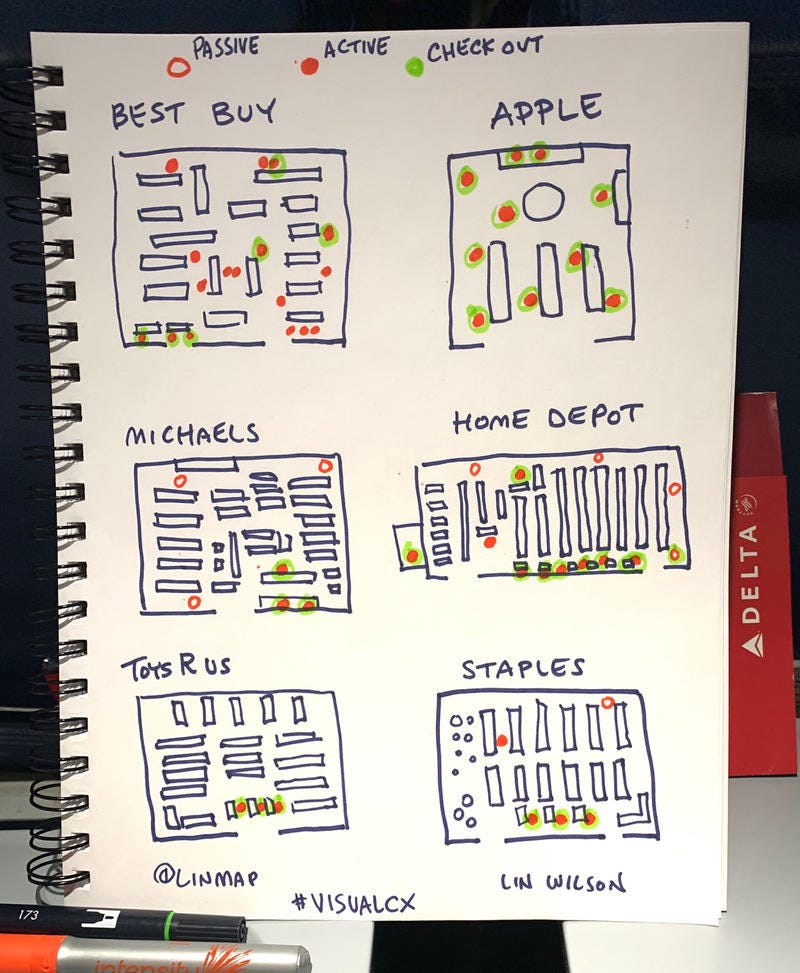 PASSIVE ACTIVE CHECK OUT
BEST BUY
APPLE
MICHAELS
HOME DEPOT
TOYS R US
STAPLES
@LINMAP
#VISUALCX
LIN WILSON
DELTA
173
intensity